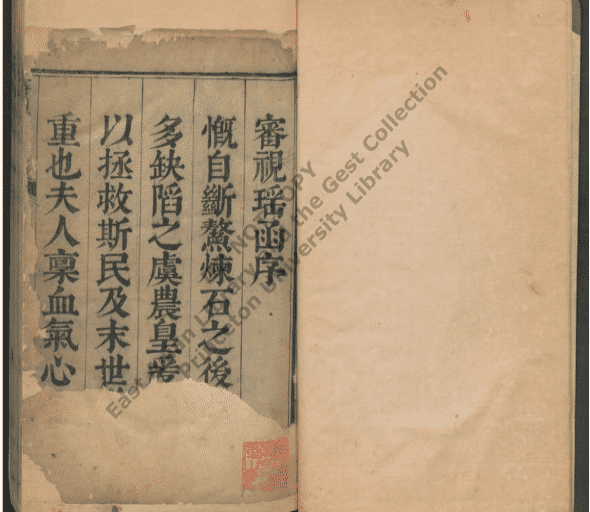 審視瑶函序
慨自斷鰲煉石之後
多缺陷之虞農皇
以拯救斯民及末世
重也夫人稟血氣心
COPY
East Asian Library and the Gest Collection
Princeton University Library